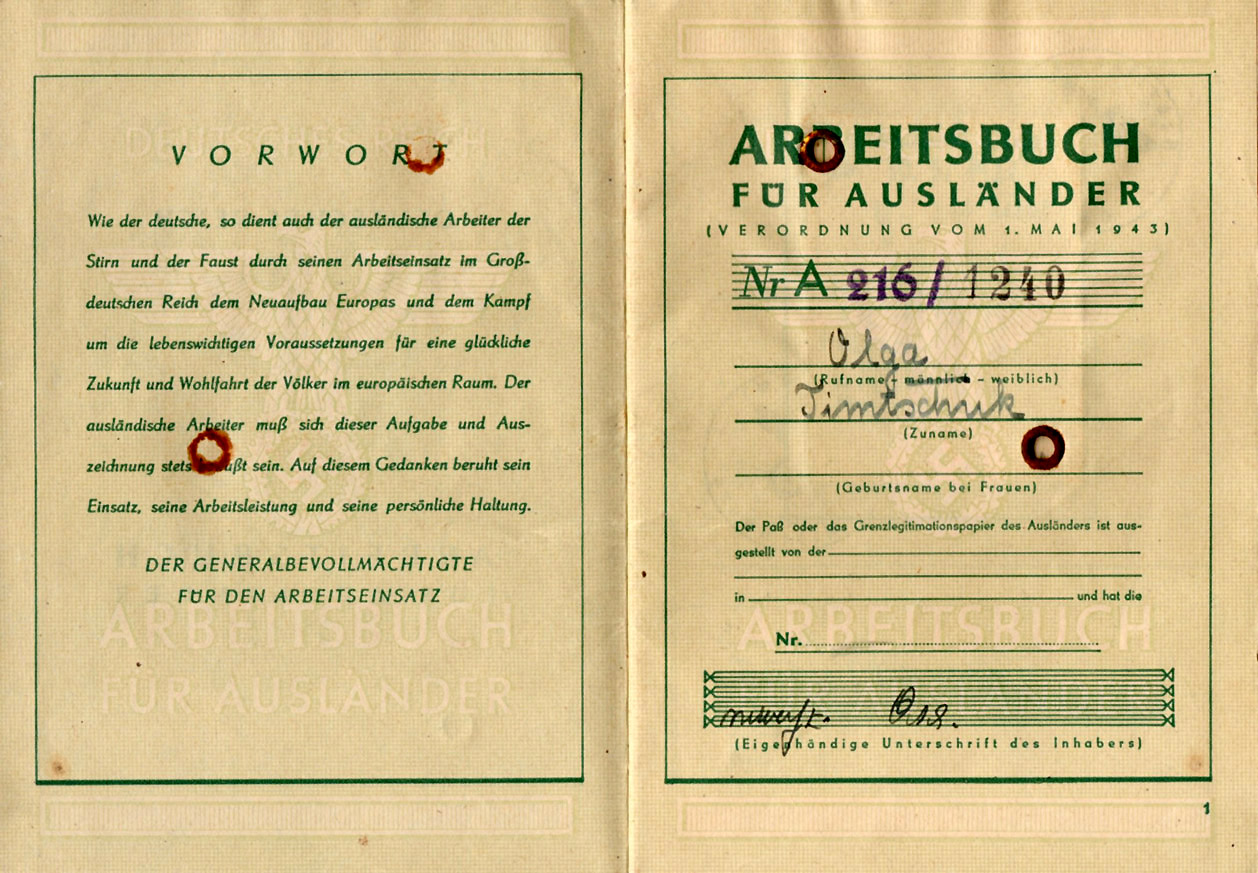 DEUTSCHES REICH
VORWORT
Wie der deutsche, so dient auch der ausländische Arbeiter der
Stirn und der Faust durch seinen Arbeitseinsatz im Groß-
deutschen Reich dem Neuaufbau Europas und dem Kampf
um die lebenswichtigen Voraussetzungen für eine glückliche
Zukunft und Wohlfahrt der Völker im europäischen Raum. Der
ausländische Arbeiter muß sich dieser Aufgabe und Aus-
zeichnung stets bewußt sein. Auf diesem Gedanken beruht sein
Einsatz, seine Arbeitsleistung und seine persönliche Haltung.
DER GENERALBEVOLLMÄCHTIGTE
FÜR DEN ARBEITSEINSATZ
ARBEITSBUCH
FÜR AUSLÄNDER
ARBEITSBUCH
FÜR AUSLÄNDER
(VERORDNUNG VOM 1. MAI 1943)
Nr A 216/ 1240
Olga
(Rufname - männlich - weiblich)
Timtschuk
(Zuname)
(Geburtsname bei Frauen)
Der Paß oder das Grenzlegitimationspapier des Ausländers ist aus-
gestellt von der
in und hat die
ARBEITSBUCH
Nr.
FÜR AUSLÄNDER
(Eigenhändige Unterschrift des Inhabers)
1